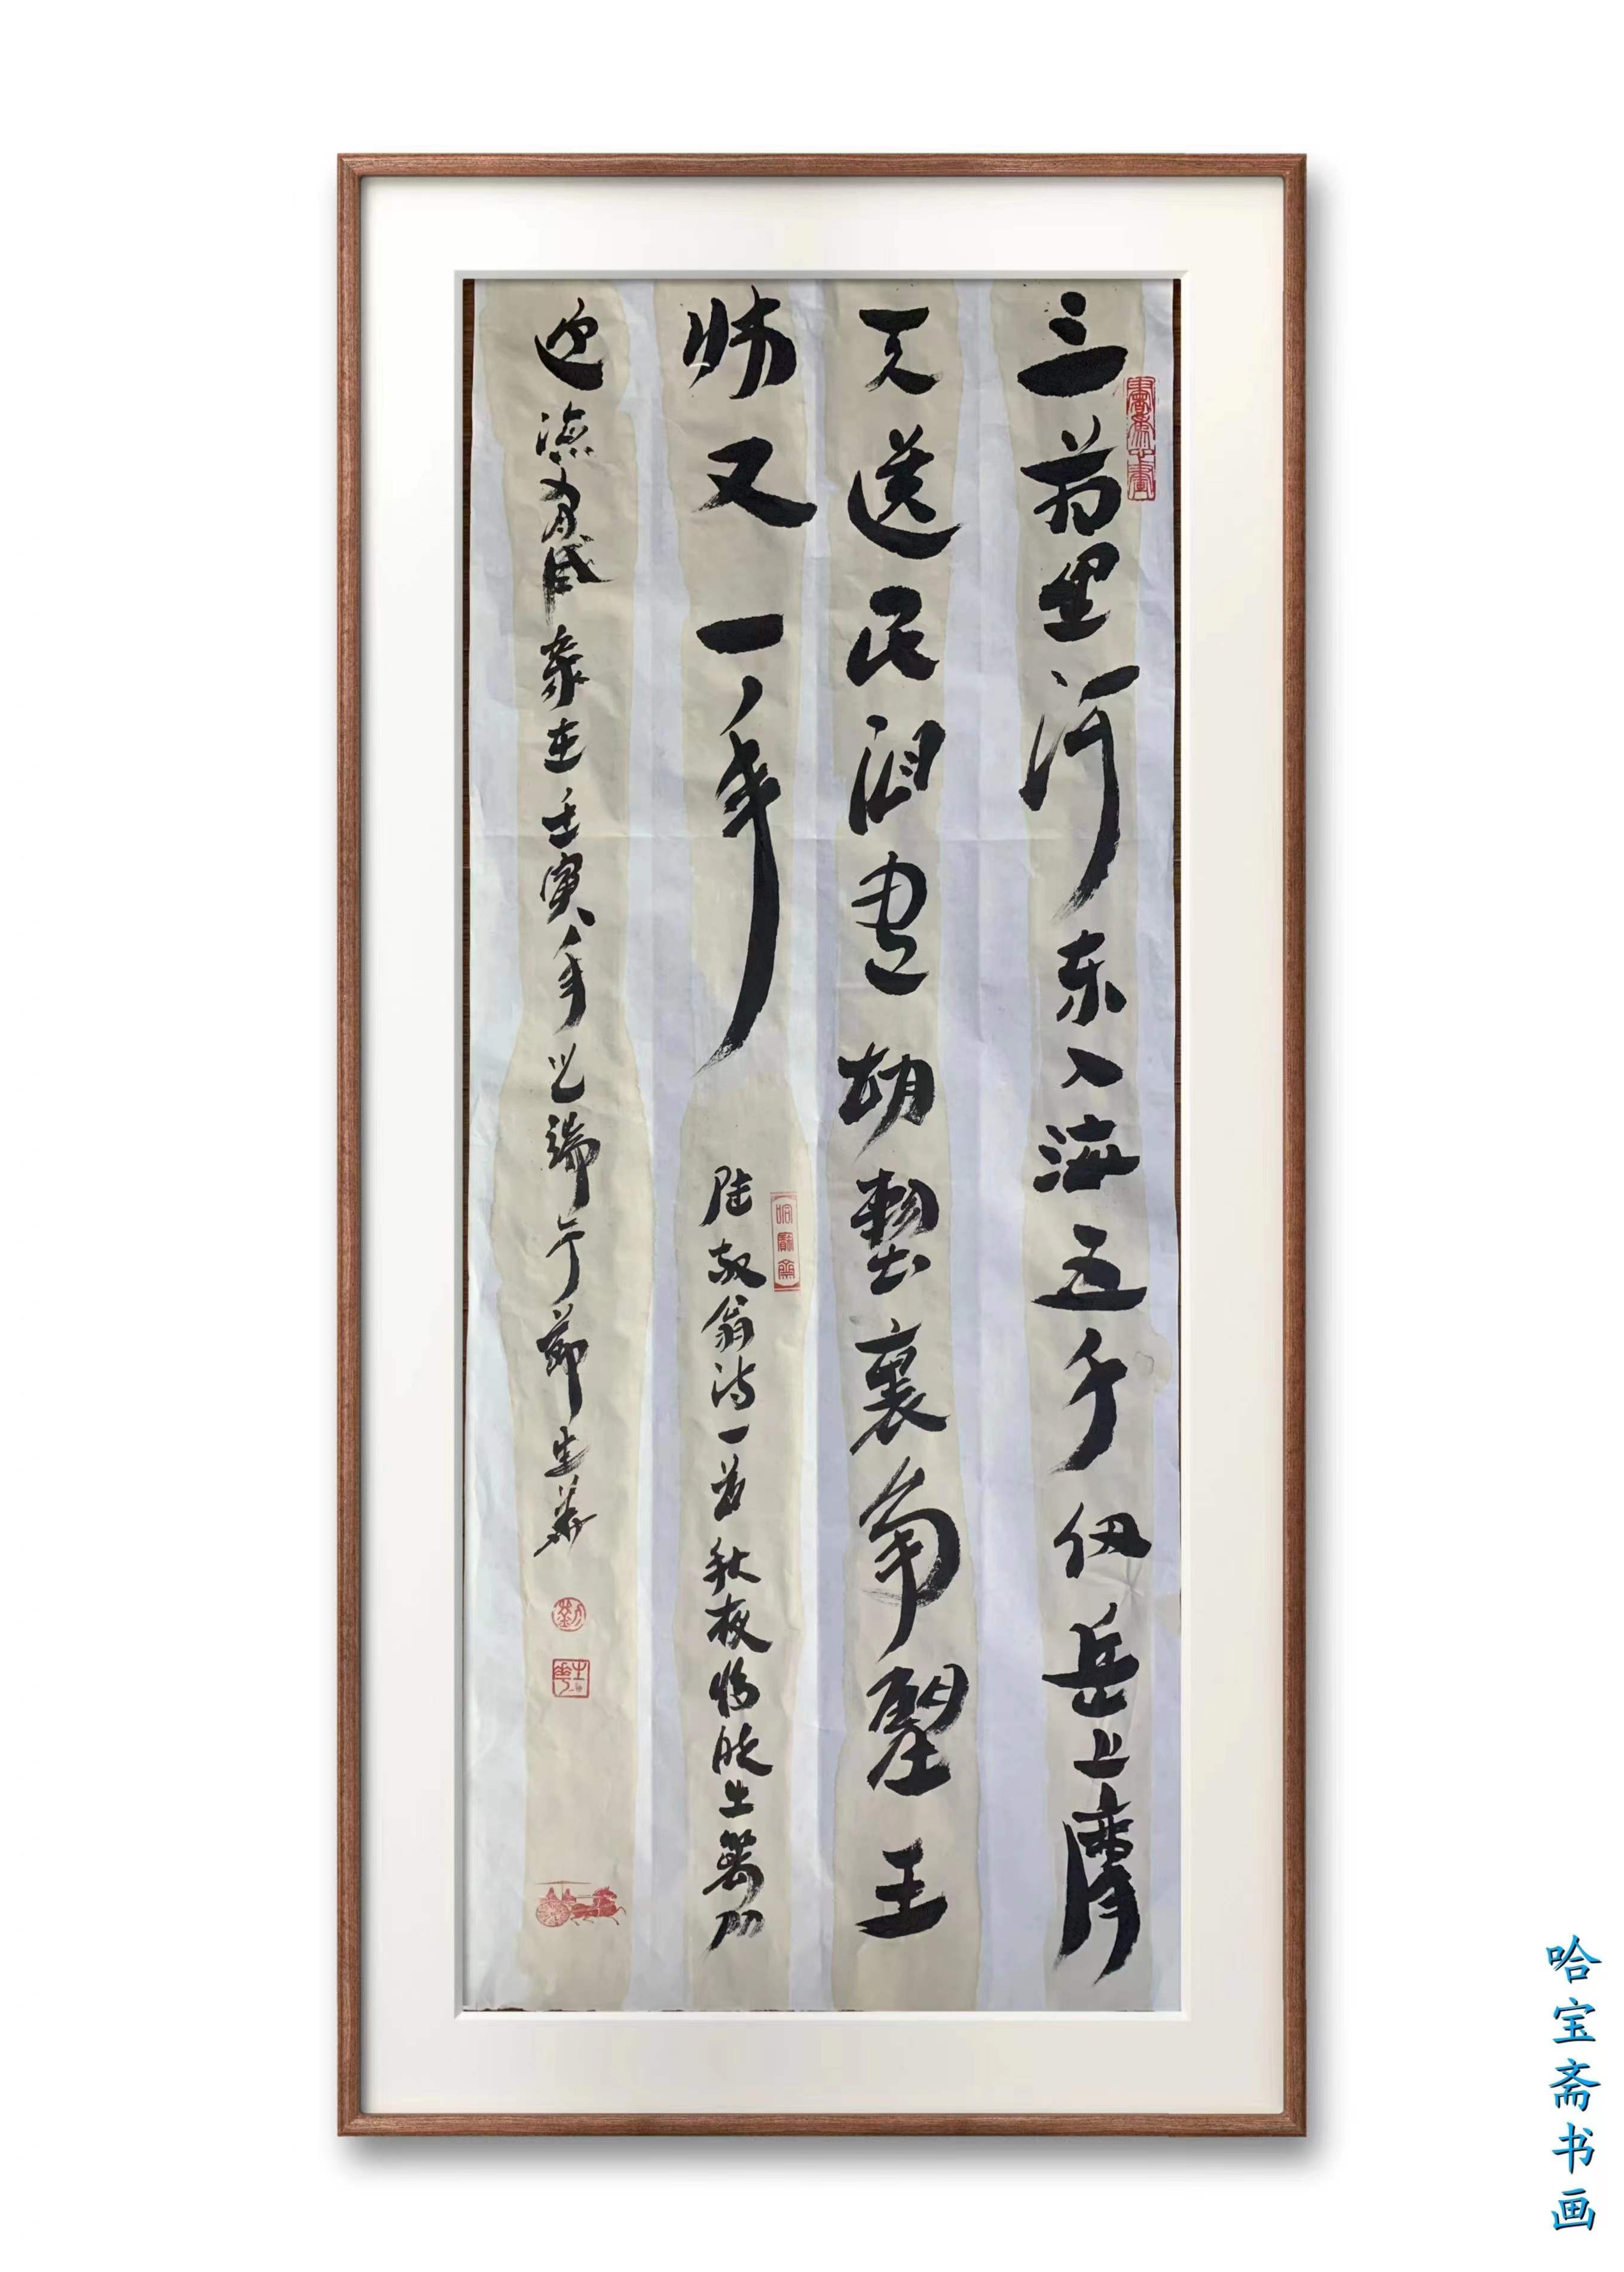 三萬里河东入海五千仞岳上摩
天遗民泪尽胡塵裏南望王
师又一年 陆放翁诗一首秋夜将晓出篱门
迎凉有感 录在壬寅年之端午节生华
哈宝斋书画